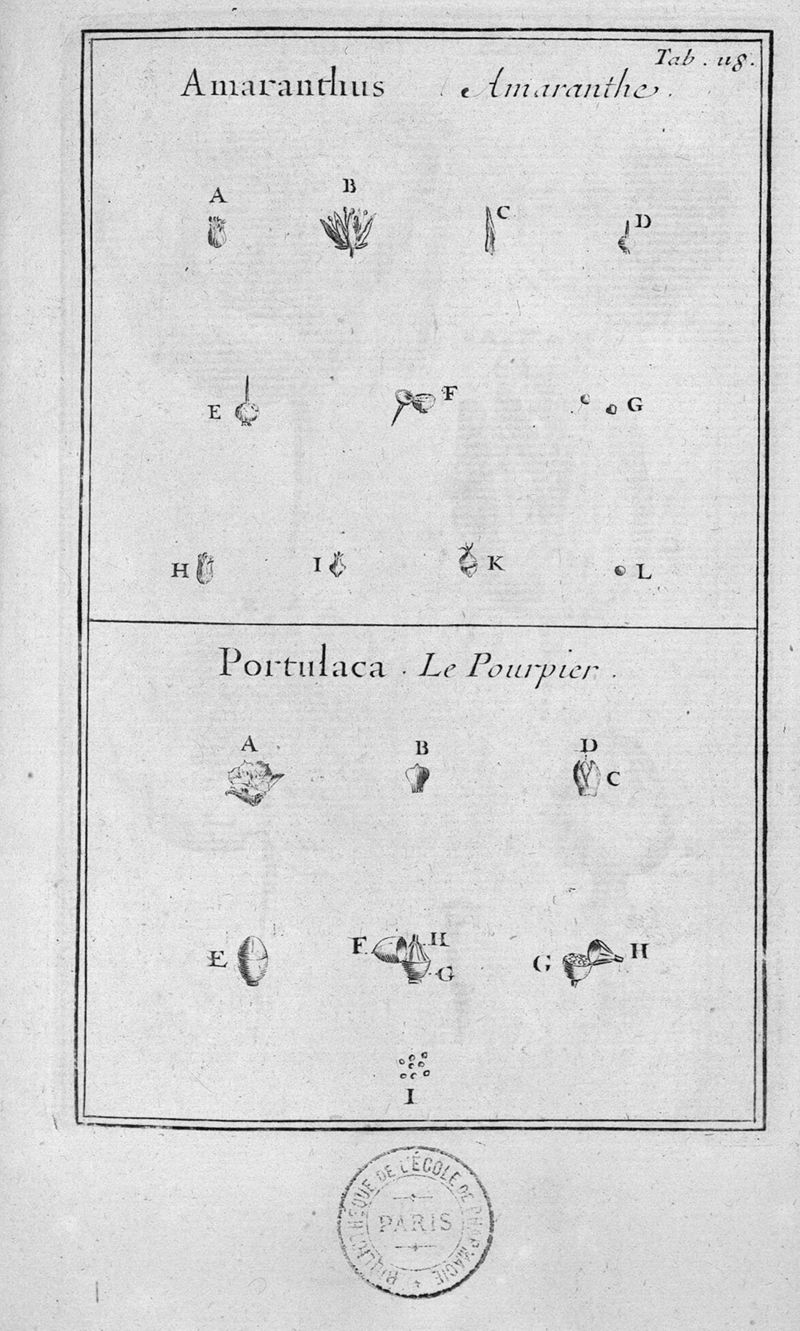 Tab. 118.
Amaranthus Amaranthe.
A B C D
E F G
H I K L
Portulaca. Le Pourpier.
A B D
C
E F H G G H
I
BIBLIOTHÈQUE DE L'ÉCOLE DE PHARMACIE
PARIS